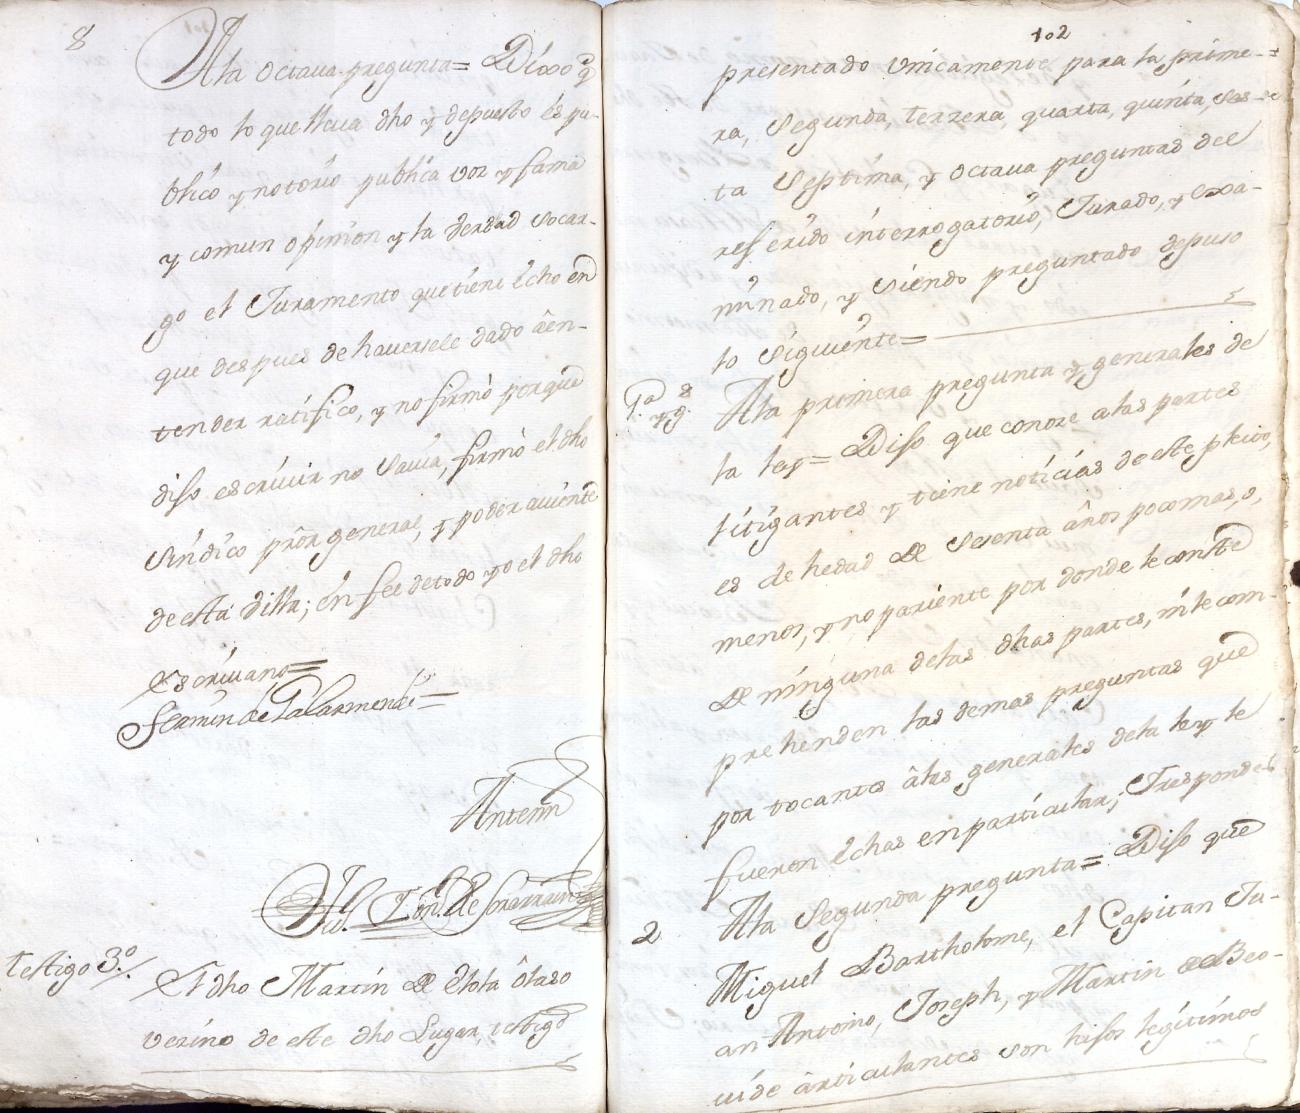 8
Ala octaua pregunta= Dixo q
todo lo que lleua dho y depuesto ês pu-
blíco y notorío publíca voz y fama
y comun opínion y la verdad socar-
go el Juramento que tiene êcho en
que despues de hauersele dado âen-
tender ratífico, y no firmò porque
dijo escríuir no sauía, firmò el dho
Síndíco prôr general, y poder auiente
de esta villa; en fee de todo yo el dho
Escríuano=
Fermin de Galarmendi=
Antemi
testigo 3º./. El dho Martín de
vezíno de este dho Lugar, testigo
102
presentado vnicamente para la prime-
ra, segunda, terzera quarta, quínta, ses-
ta septíma, y octaua preguntas del
referído ínterrogatorío, Jurado, y exa-
mínado, y síendo preguntado depuso
lo síguiente=
1ª y g.s Ala primera pregunta y generales de
la ley= Dijo que conoze alas partes
lítígantes y tiene notícías de este pleito,
es de hedad de sesenta âños poco mas, o,
menos, y no paríente por donde le conste
de nínguna delas dhas partes, ní le com-
prehenden las demas preguntas que
por tocantes âlas generales dela ley le
fueron êchas en partícular; Y responde
2 Ala segunda pregunta= Dijo que
Miguel Bartholome, el Capitan Ju-
an Antonio, Joseph, y Martin de Beo-
uíde ârticulantes son híjos legítímos